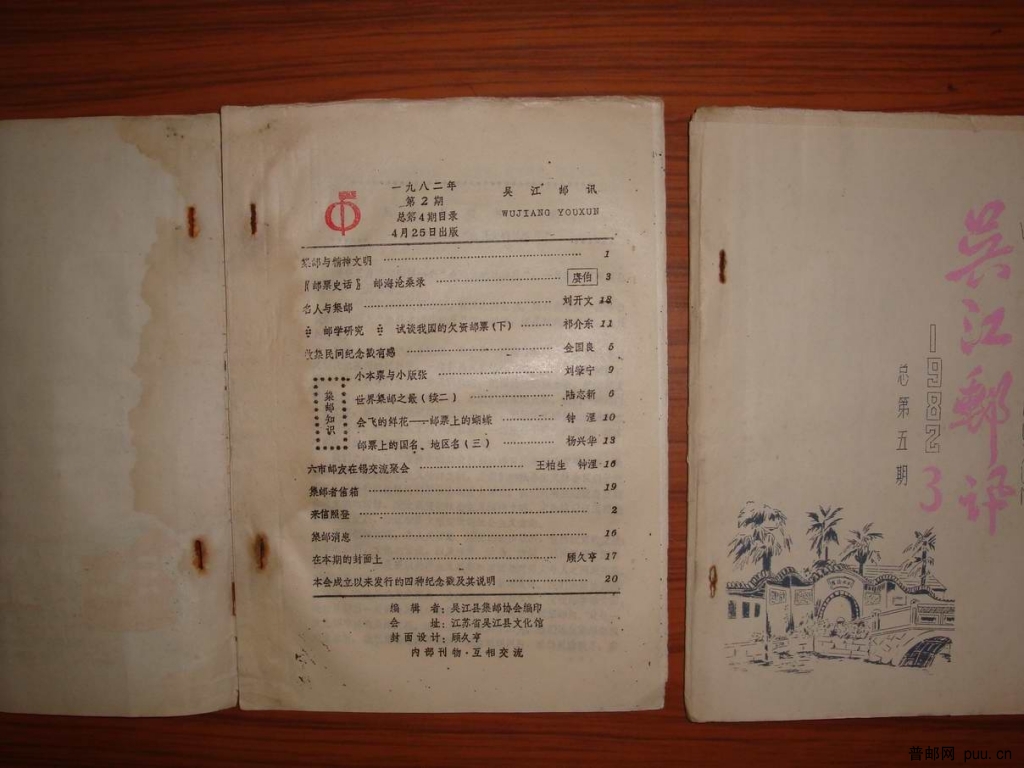 一九八二年
第2期
总第4期目录
4月25日出版
吴江邮讯
WUJIANG YOUXUN
集邮与精神文明 1
〖邮票史话〗 邮海沧桑录 庚伯 3
名人与集邮 刘开文 18
邮学研究 试谈我国的欠资邮票(下) 祁介东 11
收集民间纪念戳有感 金国良 5
集邮知识
小本票与小版张 刘肇宁 9
世界集邮之最(续二) 陆志新 6
会飞的鲜花——邮票上的蝴蝶 钟湮 10
邮票上的国名、地区名(三) 杨兴华 13
六市邮友在锡交流聚会 王柏生 钟湮 16
集邮者信箱 19
来信照登 2
集邮消息 16
在本期的封面上 顾久亨 17
本会成立以来发行的四种纪念戳及其说明 20
编辑者:吴江县集邮协会编印
会址:江苏省吴江县文化馆
封面设计:顾久亨
内部刊物·互相交流
吴江邮讯
1982
3
总第五期
普邮网 puu.cn